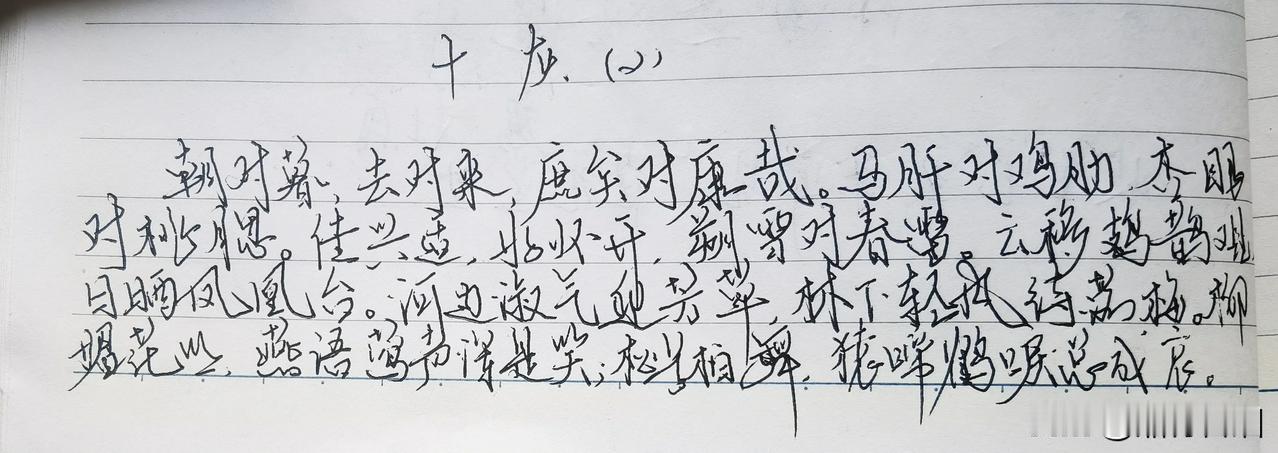 十灰（2）
朝对暮，去对来，庶矣对康哉。马肝对鸡肋，杏眼
对桃腮。佳兴适，好怀开，朔雪对春雷。云移鳷鹊观，
日晒凤凰台。河边淑气迎芳草，林下轻风待落梅。柳
媚花明，燕语莺声浑是笑；松号柏舞，猿啼鹤唳总成哀。